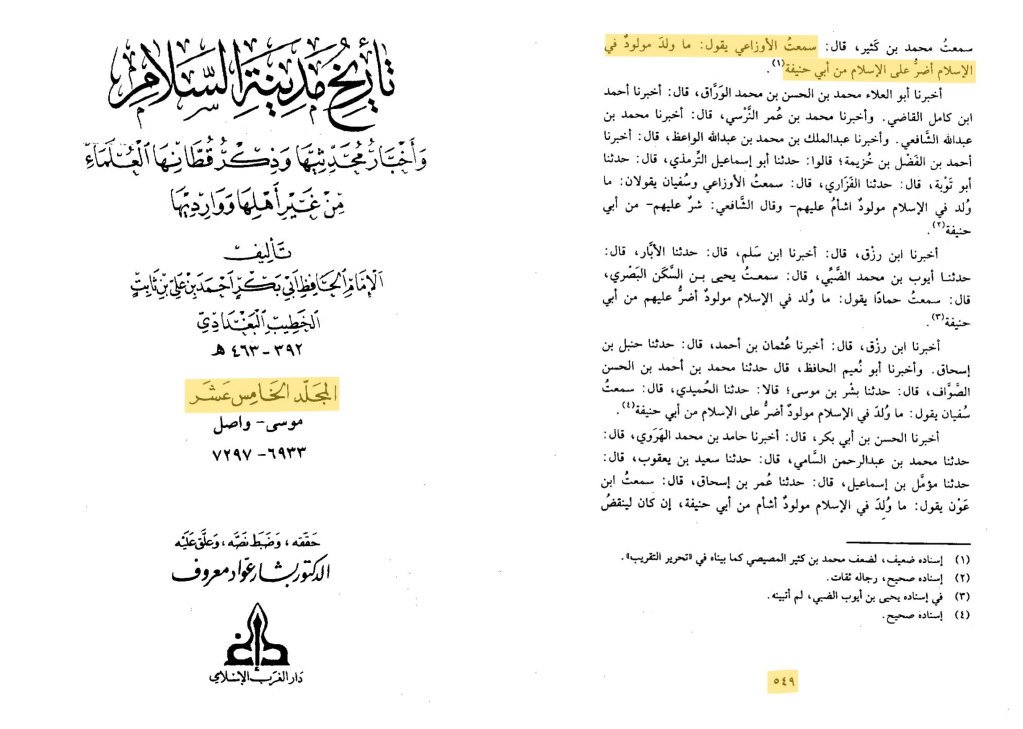 تأريخ مدينة السلام
وأخبار محدثيها وذكر قطانها العلماء
من غير أهلها ووارديها
تأليف
الإمام الحافظ أبي بكر أحمد بن علي بن ثابت
الخطيب البغدادي
٣٩٢ - ٤٦٣ هـ
المجلد الخامس عشر
موسى - واصل
٦٩٣٣ - ٧٢٩٧
حققه، وضبط نصه، وعلق عليه
الدكتور بشار عواد معروف
دار الغرب الإسلامي
سمعتُ محمد بن كَثير، قال: سمعتُ الأوزاعي يقول: ما ولدَ مولودٌ في
الإسلام أضرُّ على الإسلام من أبي حنيفة(١).
أخبرنا أبو العلاء محمد بن الحسن بن محمد الورَّاق، قال: أخبرنا أحمد
ابن كامل القاضي. وأخبرنا محمد بن عُمر النَّرْسي، قال: أخبرنا محمد بن
عبدالله الشَّافعي. وأخبرنا عبدالملك بن محمد بن عبدالله الواعظ، قال: أخبرنا
أحمد بن الفَضْل بن خُزيمة؛ قالوا: حدثنا أبو إسماعيل التِّرمذي، قال: حدثنا
أبو تَوْبة، قال: حدثنا الفَزَاري، قال: سمعتُ الأوزاعي وسُفيان يقولان: ما
وُلد في الإسلام مولودٌ اشأمُ عليهم- وقال الشَّافعي: شرٌ عليهم- من أبي
حنيفة(٢).
أخبرنا ابن رِزْق، قال: أخبرنا ابن سَلم، قال: حدثنا الأبَّار، قال:
حدثنا أيوب بن محمد الضَّبِّي، قال: سمعتُ يحيى بن السَّكَن البَصْري،
قال: سمعتُ حمادًا يقول: ما وُلد في الإسلام مولودٌ أضرُّ عليهم من أبي
حنيفة(٣).
أخبرنا ابن رزق، قال: أخبرنا عُثمان بن أحمد، قال: حدثنا حنبل بن
إسحاق. وأخبرنا أبو نُعيم الحافظ، قال حدثنا محمد بن أحمد بن الحسن
الصَّوَّاف، قال: حدثنا بشْر بن موسى؛ قالا: حدثنا الحُميدي، قال: سمعتُ
سُفيان يقول: ما وُلدَ في الإسلام مولودٌ أضرُّ على الإسلام من أبي حنيفة(٤).
أخبرنا الحسن بن أبي بكر، قال: أخبرنا حامد بن محمد الهَرَوي، قال:
حدثنا محمد بن عبدالرحمن السَّامي، قال: حدثنا سعيد بن يعقوب، قال:
حدثنا مؤمَّل بن إسماعيل، قال: حدثنا عُمر بن إسحاق، قال: سمعتُ ابن
عَوْن يقول: ما وُلِدَ في الإسلام مولودٌ أشأم من أبي حنيفة، إن كان لينقضُ
(١) إسناده ضعيف، لضعف محمد بن كثير المصيصي كما بيناه في «تحرير التقريب».
(٢) إسناده صحيح، رجاله ثقات.
(٣) في إسناده يحيى بن أيوب الضبي، لم أتبينه.
(٤) إسناده صحيح.
٥٤٩